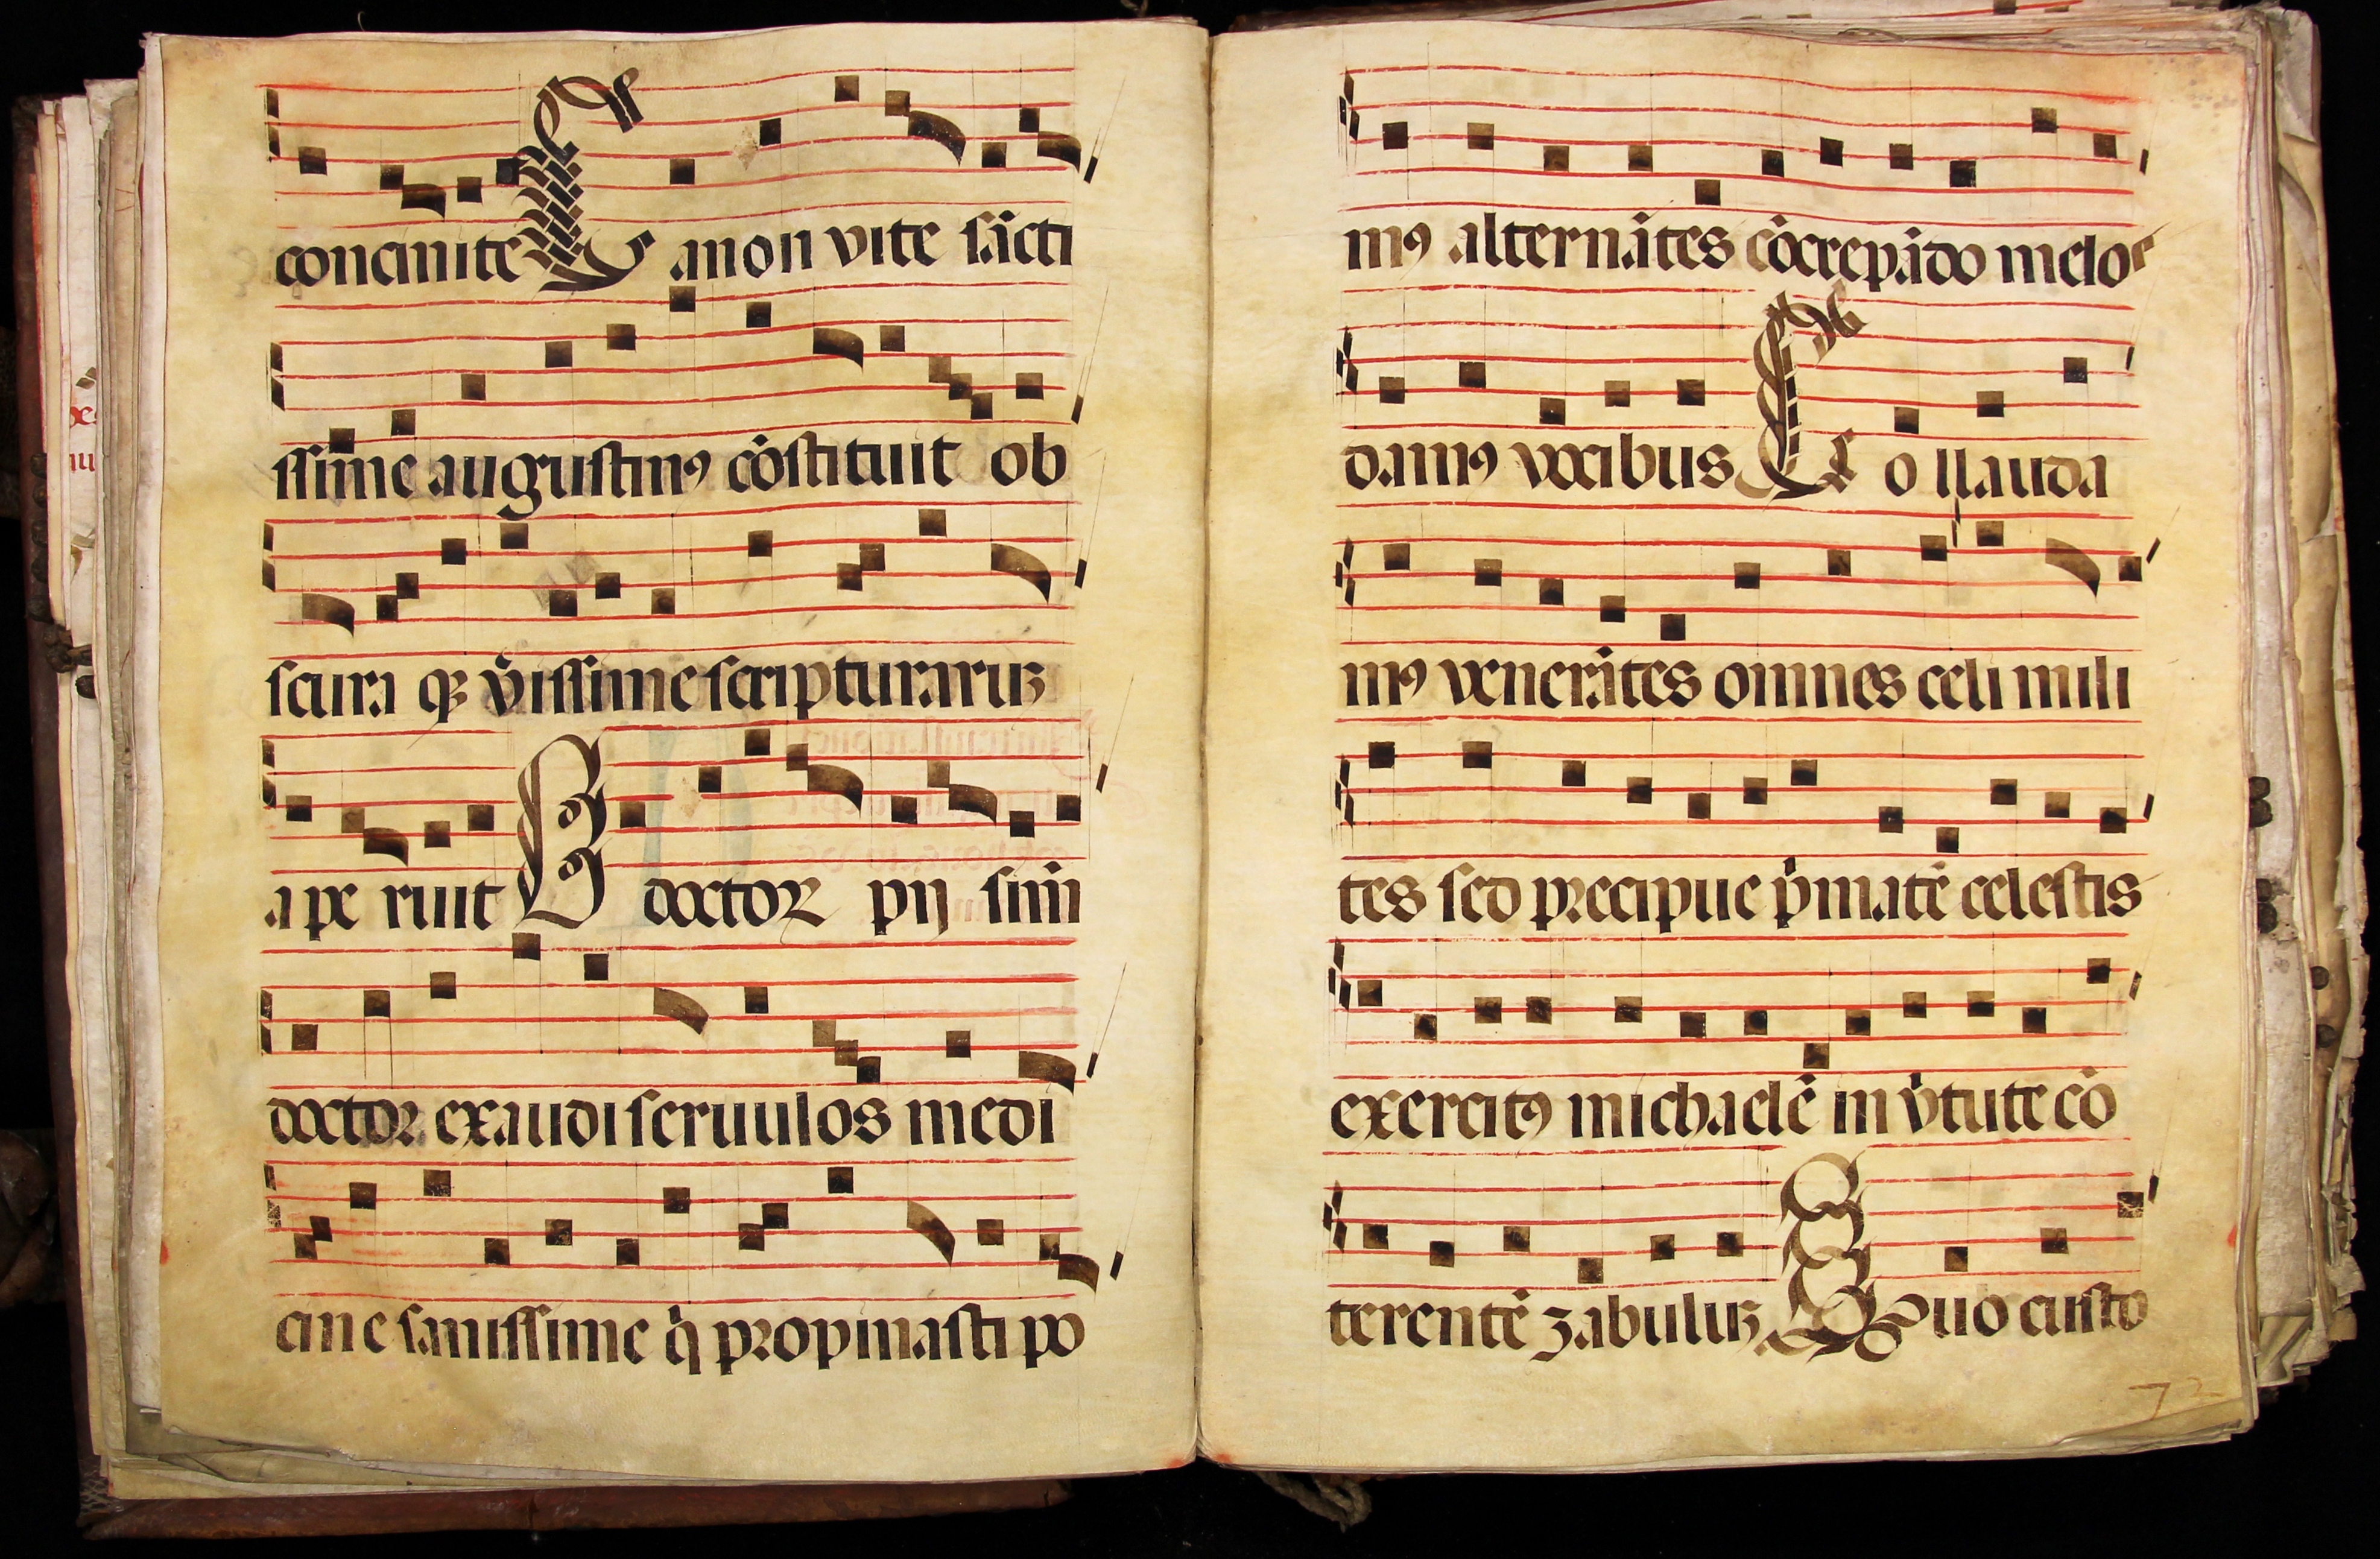 concinite C anon vite sācti
ssime augustinꝰ cōstituit ob
scura qꝫ v̓issime scripturaruꝫ
ape ruit B doctor pij sim̄
doctor exaudi seruulos medi
cine sanissime q̄ propinasti po
mꝰ alternātes cōcrepādo melos
damꝰ vocibus C ollauda
mꝰ venerātes omnes celi mili
tes sed precipue p̓matē celestis
exercitꝰ michaelē in v̓tute cō
terentē zabuluꝫ Quo custo
72